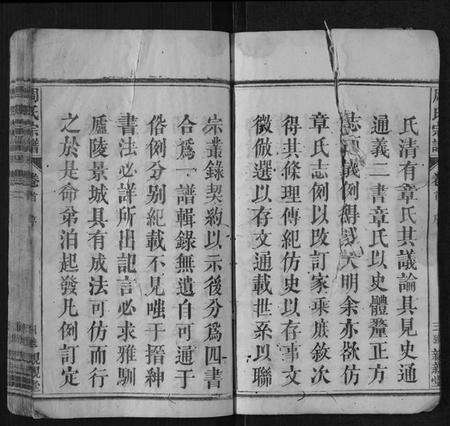 氏清有章氏其議論具見史通
通義二書章氏以史體釐正方
志
義例
明余亦欲仿
章氏志例以改訂家乘庶敘次
得其條理傳紀仿史以存事文
徵倣選以存文通載世系以聯
宗叢錄契約以示後分爲四書
合爲一譜輯錄無遺自可通于
俗例分别紀載不見嗤于搢紳
書法必詳所出記言必求雅馴
廬陵景城具有成法可仿而行
之於是命弟洎起發凡例訂定
周氏宗譜
卷首
序